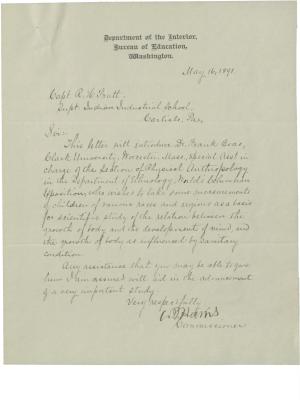 Department of the Interior,
Bureau of Education,
Washington.
May 16, 1891.
Capt. R. H. Pratt
Supt Indian Industrial School,
Carlisle, Pa.,
Sir:-
This letter will introduce Dr. Frank Boas,
Clark University, Worcester, Mass., special Asst in
charge of the section of Physical Anthropology
in the Department of Ethnology, World's Columbian
Exposition, who wishes to take some measurements
of children of various races and regions as a basis
for scientific study of the relation between the
growth of body and the development of mind, and
the growth of body as influenced by sanitary
condition
Any assistance that you may be able to give
him I am assured will aid in the advancement
of a very important study.
Very respectfully
Harris
Commissioner